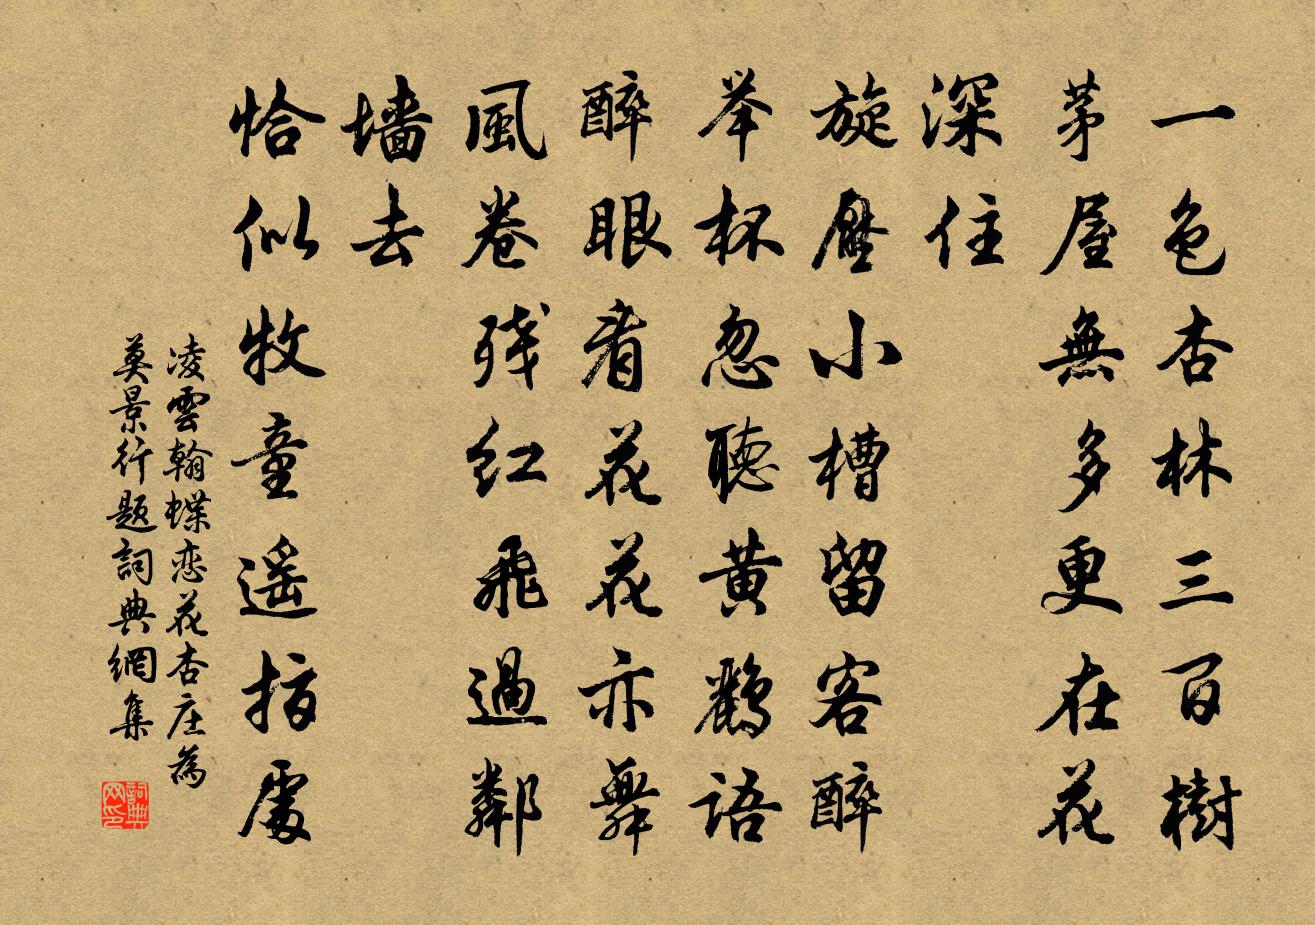 一色杏林三百樹
茅屋無多更在花
深住
旋壓小槽留客醉
举杯忽聽黄鸝語
醉眼看花花亦舞
風卷残红飛過鄰
墻去
恰似牧童遥指處
凌雲翰蝶恋花杏庄為
莫景行题詞典網集
詞典网印